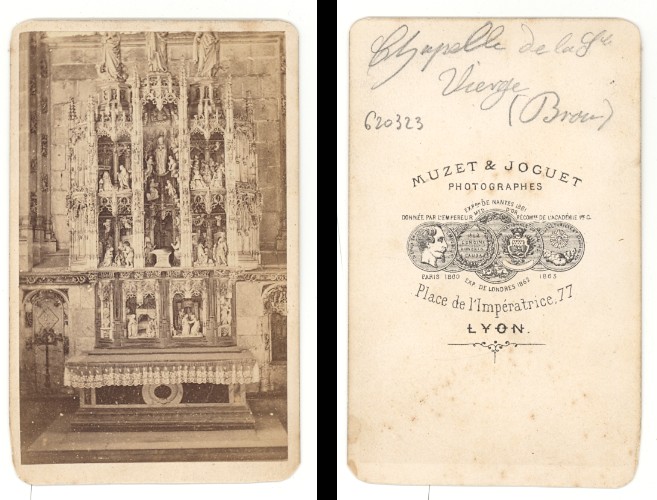 Chapelle de la Ste
Vierge
(Brou)
620323
MUZET & JOGUET
PHOTOGRAPHES
EXPon DE NANTES 1861
DONNÉE PAR L'EMPEREUR MÉD. D'OR RÉCOMse DE L'ACADÉMIE Ile G.
PARIS 1860 EXP. DE LONDRES 1862 1863
Place de l'Impératrice, 77
LYON.